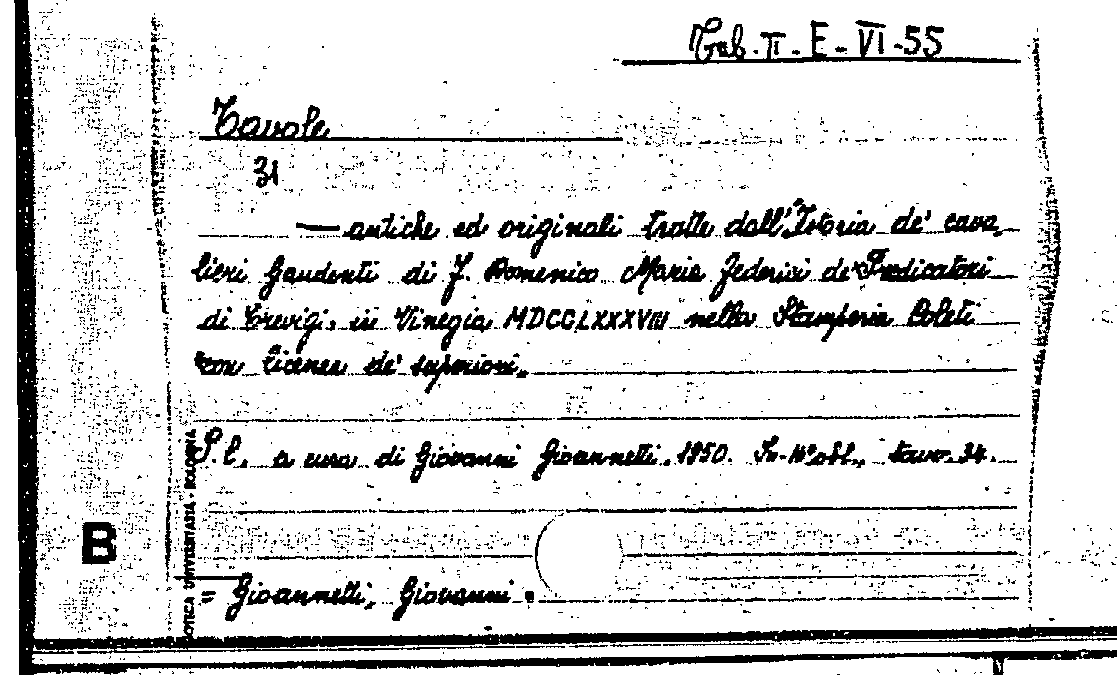 Tab. II - E - VI - 55
Tavole
31
— antiche ed originali tratte dall'Istoria de' cava,
lieri Gaudenti di F. Domenico Maria Federici de' Predicatori
di Trevigi, in Vinegia MDCCLXXXVIII nella Stamperia Coleti
con licenza de' superiori.
S.l. a cura di Giovanni Giannetti, 1950. In-4° obl., tavv. 34.
B
UNIVERSITARIA - BOLOGNA
= Gioannetti, Giovanni.